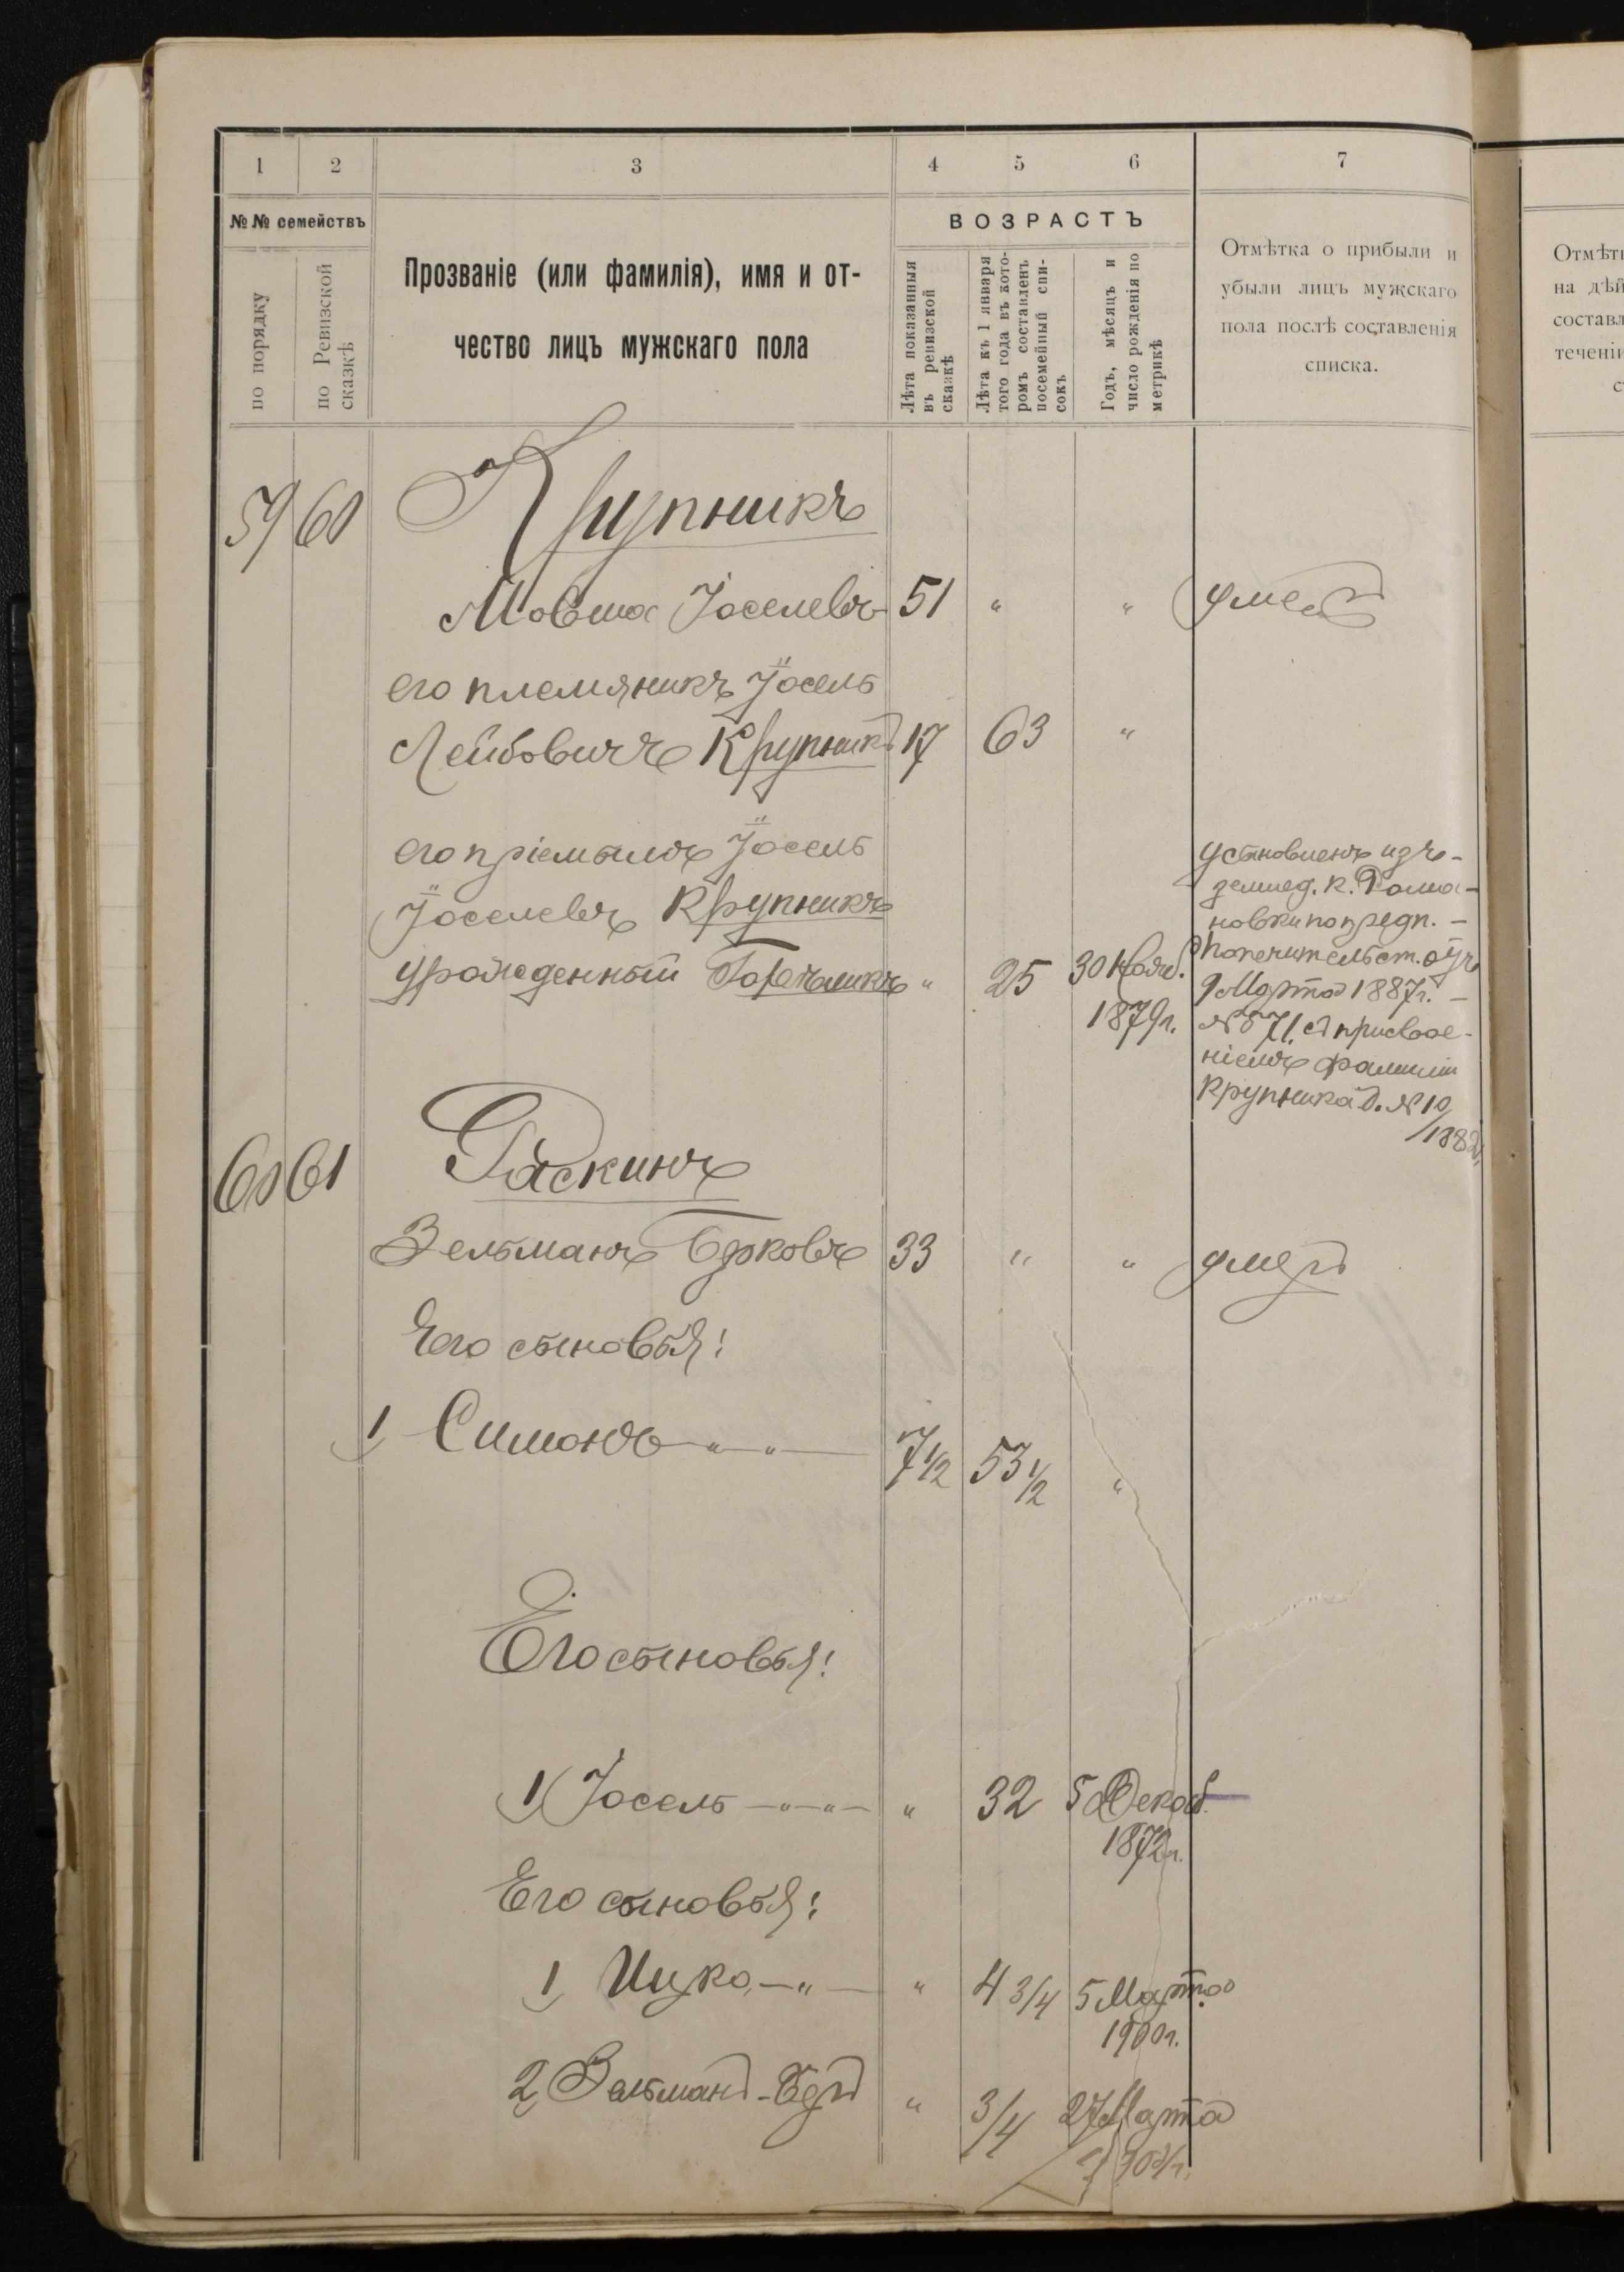 1 2 3 4 5 6 7
№ № семействъ
по порядку
по Ревизской
сказкѣ
Прозваніе (или фамилія), имя и от-
чество лицъ мужскаго пола
ВОЗРАСТЪ
Лѣта показанныя
въ ревизской
сказкѣ
Лѣта къ 1 января
того года въ кото-
ромъ составленъ
посемейный спи-
сокъ
Годъ, мѣсяцъ и
число рожденія по
метрикѣ
Отмѣтка о прибыли и
убыли лицъ мужскаго
пола послѣ составленія
списка.
59 60 Крупникъ
Мовша Іоселевъ 51 " " умеръ
его племяникъ Іосель
Лейбовичъ Крупникъ 17 63 "
его пріемышъ Іосель
Іоселевъ Крупникъ
урожденный " 25 30 Нояб.
1879г.
из
землед. к. Рома-
новки по предп. –
Попечительст. отъ
9 Марта 1887г. –
№ 571, съ присвое-
ніемъ фамиліи
Крупника д. № 10
/188
60 61 Раскинъ
Зельманъ Берковъ 33 " " умеръ
Его сыновья:
1 Симонъ – " – " – 7 1/2 53 1/2 "
Его сыновья:
1 Іосель – " – " – " 32 5 Декаб.
1872г.
Его сыновья:
1 Ицко – " – " 4 3/4 5 Марта
1900г.
2 Зельманъ-Беръ " 3/4 27 Марта
190 г.
Отмѣт
на дѣй
состав
теченіи
с